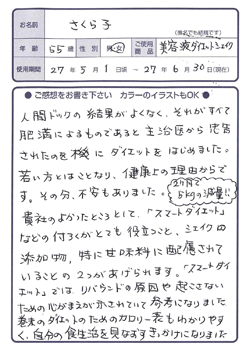 お名前
さくら子
(匿名でも結構です)
年齢 55歳 性別 男・女 ご使用商品 美容液ダイエットシェイク
使用期間 27年5月1日頃 〜 27年6月30日(現在)
●ご感想をお書き下さい カラーのイラストもOK●
人間ドックの結果がよくなく、それがすべて
肥満によるものであると主治医から忠告
されたのを機にダイエットをはじめました。
若い方とはことなり、健康上の理由からで
す。その分、不安もありました。
2カ月で
5kgの減量!!
貴社のよかったところとして、「スマートダイエット」
などの付ろくがとても役立つこと、シェイクの
添加物、特に甘味料に配慮されて
いることの2つがあげられます。「スマートダイ
エット」では、リバウンドの原因や起こさない
ための心がまえが示されていて参考になりました
巻末のダイエットのためのカロリー表もわかりやす
く、自分の食生活を見なおすきっかけになりました